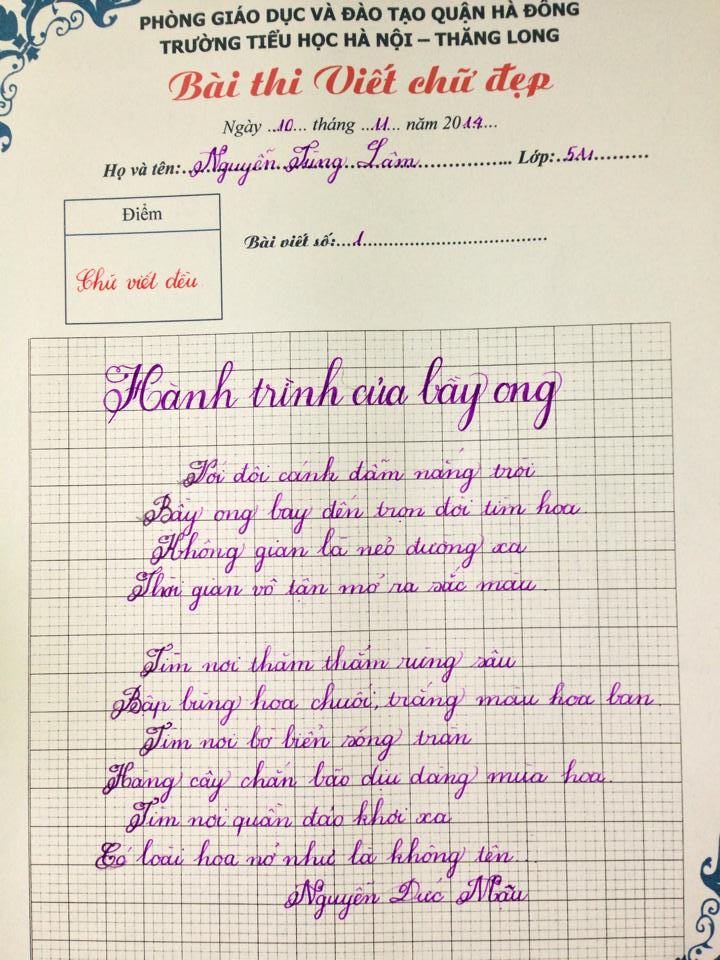 PHÒNG GIÁO DỤC VÀ ĐÀO TẠO QUẬN HÀ ĐÔNG
TRƯỜNG TIỂU HỌC HÀ NỘI – THĂNG LONG
Bài thi Viết chữ đẹp
Ngày ..10... tháng ..11... năm 2017...
Họ và tên:..Nguyễn Tùng Lâm................ Lớp:..5M..........
Điểm
Chữ viết đều
Bài viết số:...1.......................................
Hành trình của bầy ong
Với đôi cánh đẫm nắng trời
Bầy ong bay đến trọn đời tìm hoa
Không gian là nẻo đường xa
Thời gian vô tận mở ra sắc màu.
Tìm nơi thăm thẳm rừng sâu
Bập bùng hoa chuối, trắng màu hoa ban.
Tìm nơi bờ biển sóng tràn
Hàng cây chắn bão dịu dàng mùa hoa.
Tìm nơi quần đảo khơi xa
Có loài hoa nở như là không tên...
Nguyễn Đức Mậu